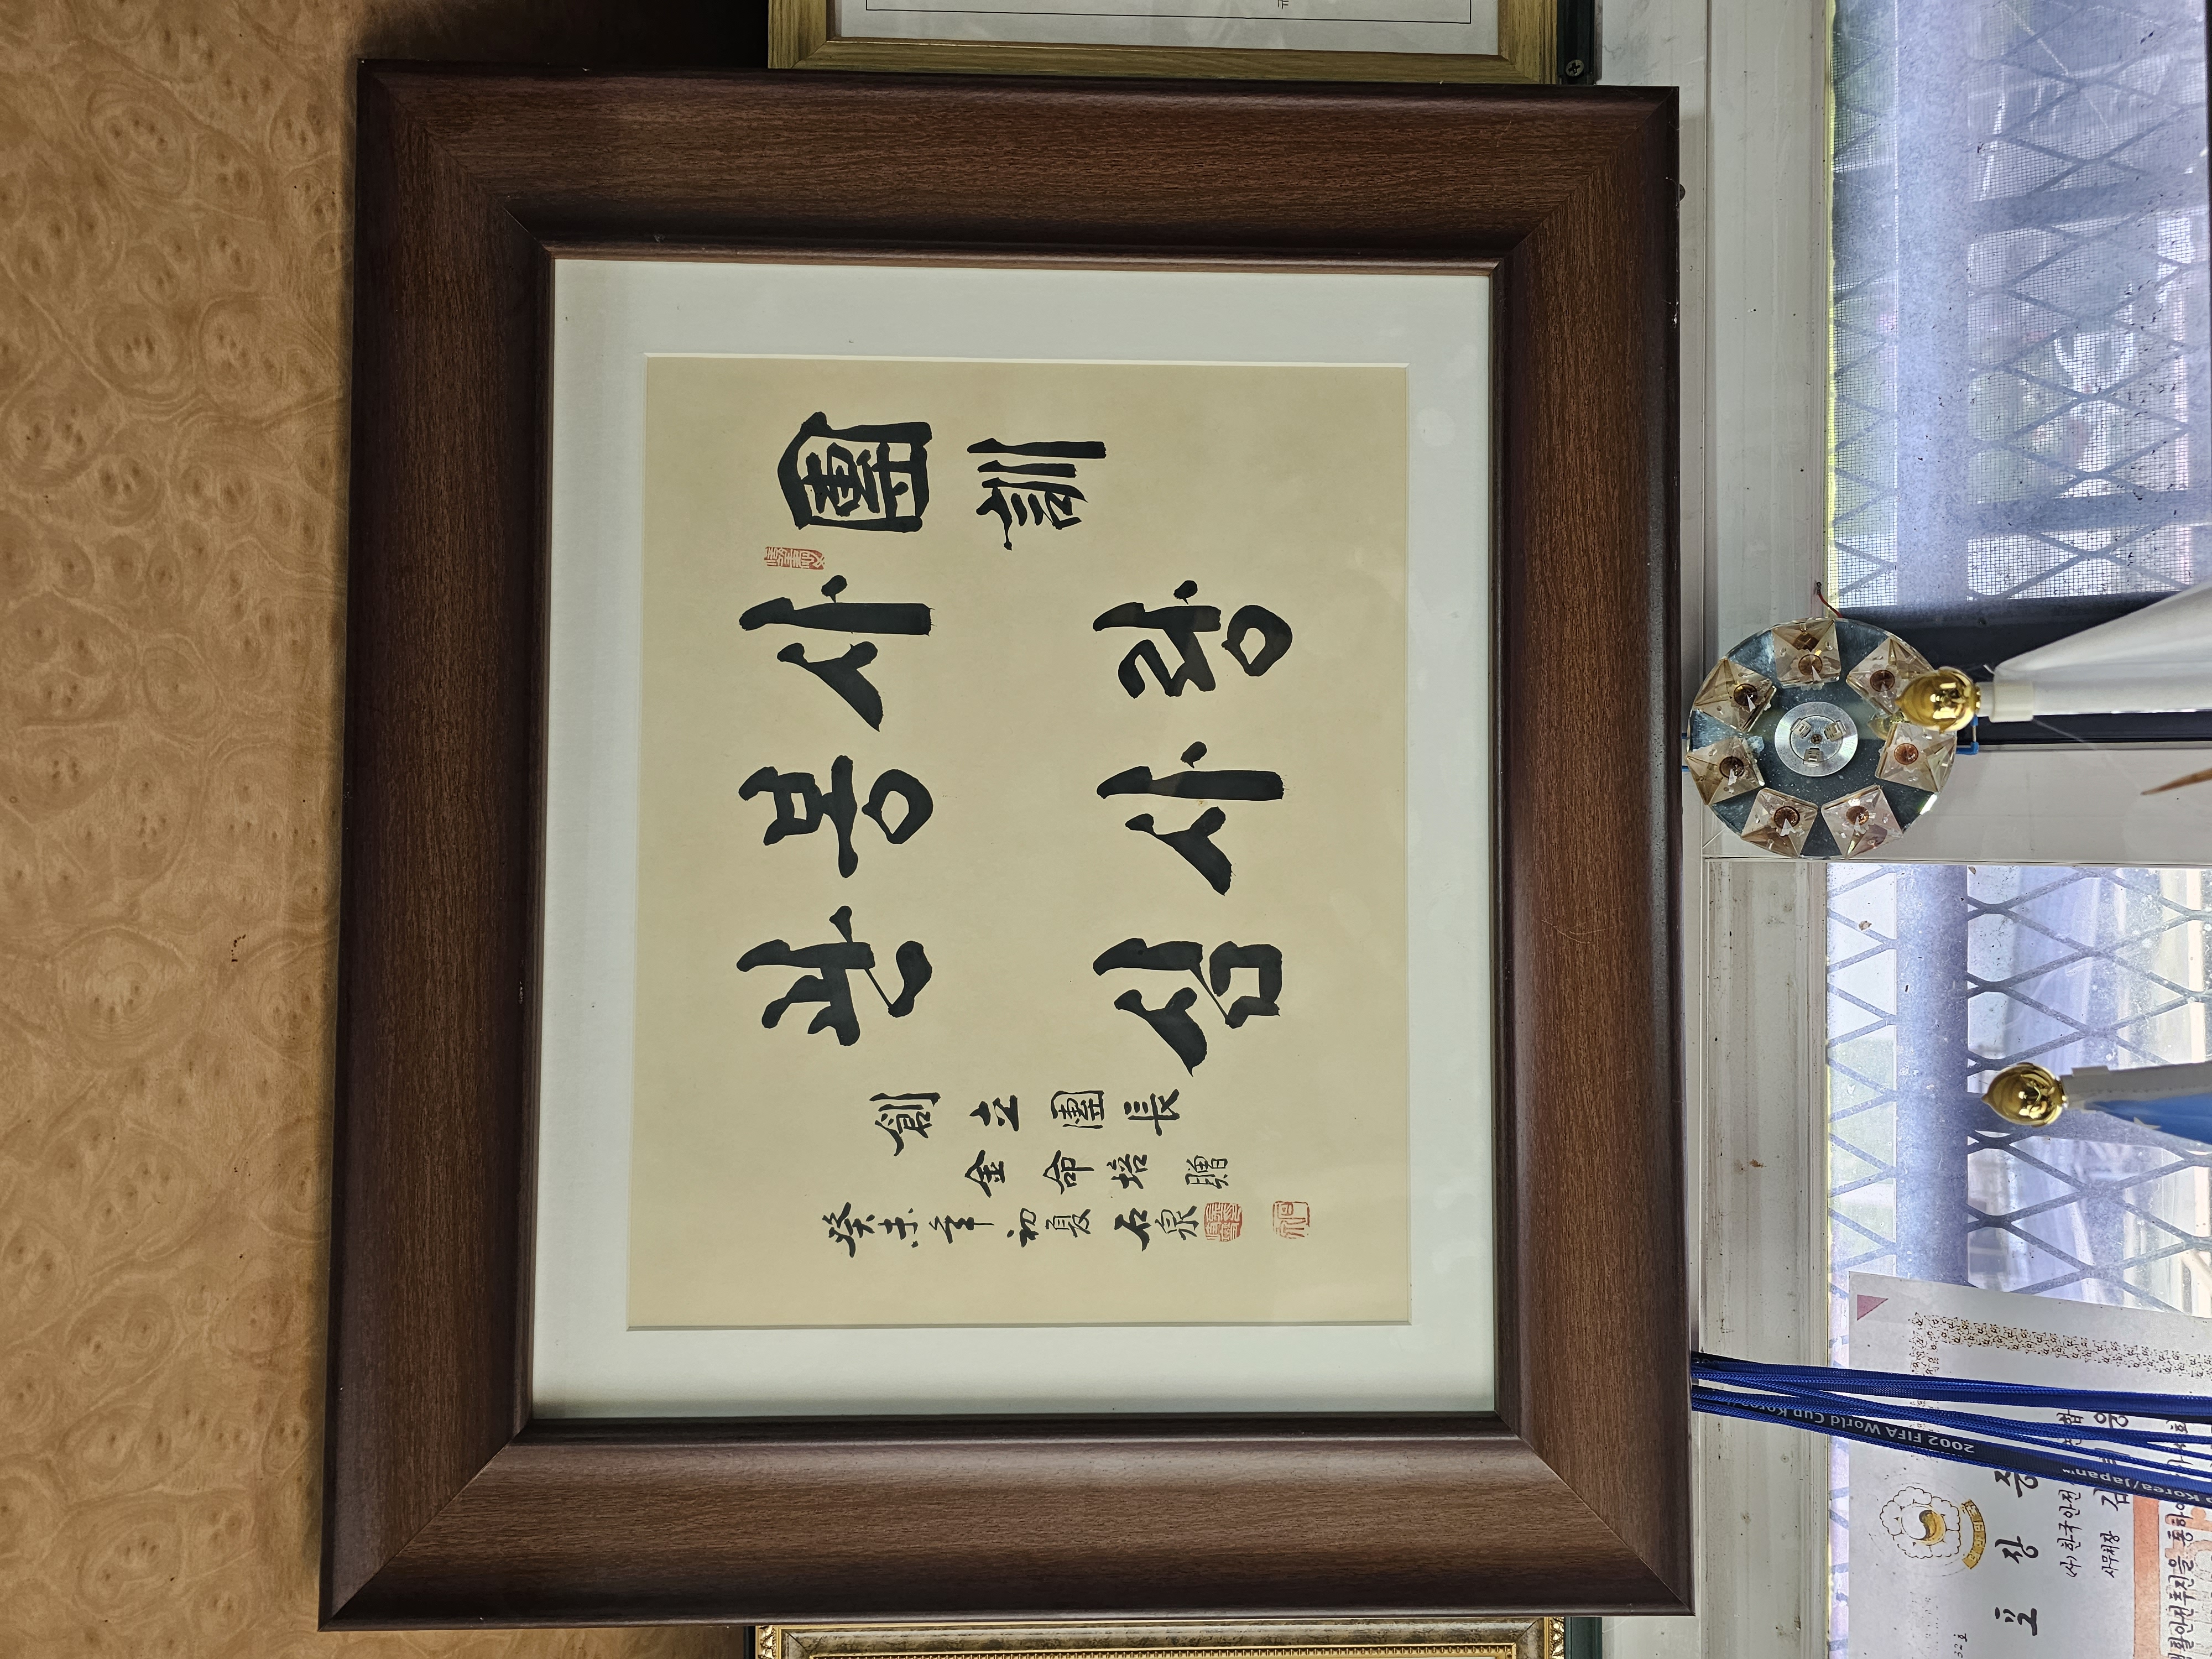 團訓
사랑
봉사
관심
創立團長
金命培 贈
癸未年 初夏 石泉
2002 FIFA World Cup Korea/Japan
표 장
(사)한국안전
사무처장 김